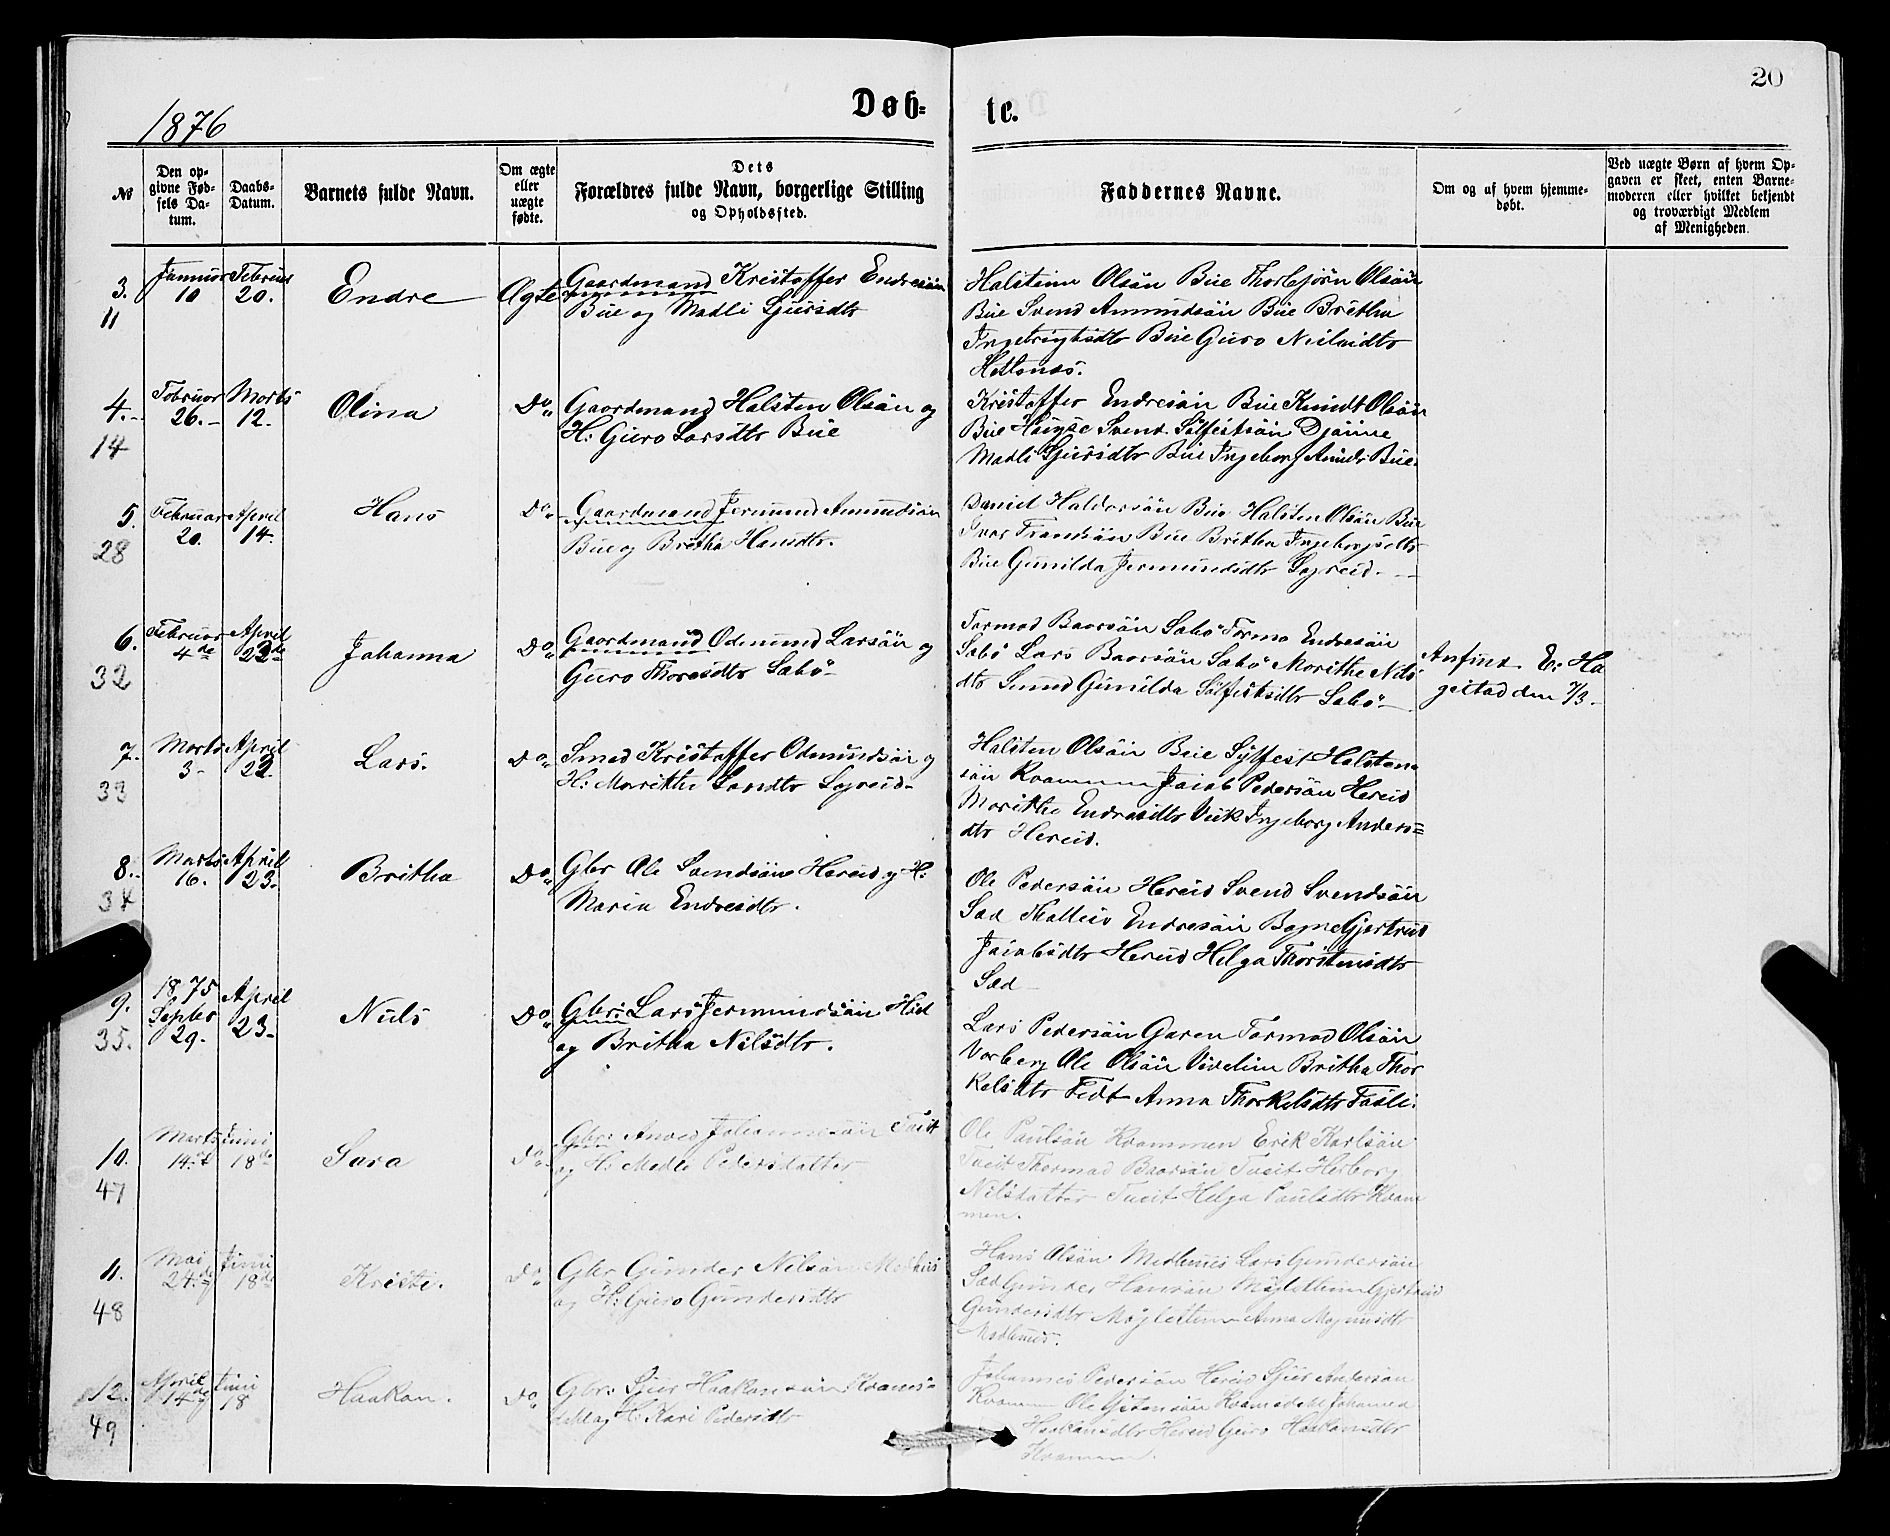 20
1876
Døb-
te.
№
Den op-
givne Fød-
sels Da-
tum.
Daabs-
Datum.
Barnets fulde Navn.
Om ægte
eller
uægte
fødte.
Dets
Forældres fulde Navn, borgerlige Stilling
og Opholdssted.
Faddernes Navne.
Om og af hvem hjemme-
døbt.
Ved uægte Børn af hvem Op-
gaven er skeet, enten Barne-
moderen eller hvilket bekjendt
og troværdigt Medlem
af Menigheden.
3.
11
Januar
10
Februar
20.
Endre
Ægte
Gaardmand Kristoffer Endresøn
Bue og Madli Sjursdtr
Halstein Olsøn Bue Thorbjørn Olsøn
Bue Svend Amundsøn Bue Britha
Ingebrigtsdtr Bue Guro
4.
14
Februar
26.
Marts
12.
Olina
Do
Gaardmand Halsten Olsøn og
H: Guro Larsdtr Bue
Kristoffer Endresøn Bue Knudt Olsøn
Bue Svend Sølfestsøn
Madli Sjursdtr Bue Ingeborg Bue
5.
28
Februar
20.
April
14.
Hans
Do
Gaardmand Jermund Amundsøn
Bue og Britha Hansdtr.
Daniel Haldorsøn Bue Halsten Olsøn Bue
Ivar Bue Britha
Bue Gunilda Jermundsdtr Legreid
6.
32
Februar
4de
April
22de
Johanna
Do
Gaardmand Odmund Larsøn og
Guro Thoresdtr Sabø
Tormod Baarsøn Sabø Tormo Endresøn
Sabø Lars Baarsøn Sabø Morithe Nils
dtr Gunilda Sølfestsdtr Sabø
Anfind E: Ha
gestad den 7/3
7.
33
Marts
3
April
22.
Lars.
Do
Smed Kristoffer Odmundsøn og
H: Marithe Legreid
Halsten Olsøn Bue Sylfest Halsten
søn Kvammen Jacob Pedersøn Hereid
Morithe Endresdtr Viik Ingeborg Anders=
dtr Hereid.
8.
34
Marts
16.
April
23.
Britha
Do
Gbr Ole Svendsøn Hereid og H:
Maria Endresdtr.
Ole Pedersøn Hereid Svend Svendsøn
Sæd Endresøn Gjertrud
Jacobsdtr Hereid Helga Thorstensdtr
Sæd
9.
35.
1875
Septbr
29.
April
23.
Nils
Do
Gbr: Lars Jermundsøn
og Britha Nilsdtr.
Lars Pedersøn Garen Tormod Olsøn
Varberg Ole Olsøn Vivelin Britha Thor
kelsdtr Anna Thorkelsdtr
10.
47
Marts
14de
Juni
18de
Sara
Do
Gbr:
og H: Pedersdatter
Ole Paulsøn Kvammen Erik Karlsøn
Tveit Thormod Baarsøn Tveit Herborg
Nilsdatter Tveit Helga Paulsdtr Kvam
men.
11.
48
Mai
24de
Juni
18de
Kristi.
Do
Gbr Gunder Nilsøn
og H: Guro Gundersdtr
Hans Olsøn Lars Gundersøn
Sæd Gunder Hansøn Gjertrud
Gundersdtr Anna Magnusdtr
12.
49
April
14de
Juni
18
Haakon.
Do
Gbr: Sjur Haakonsøn Kvams-
dal og H: Kari Pedersdtr
Johannes Pedersøn Hereid Sjur Andersøn
Kvammen Ole Kvamsdal Johanna
Haakonsdtr Hereid Guro Haakonsdtr
Kvammen.